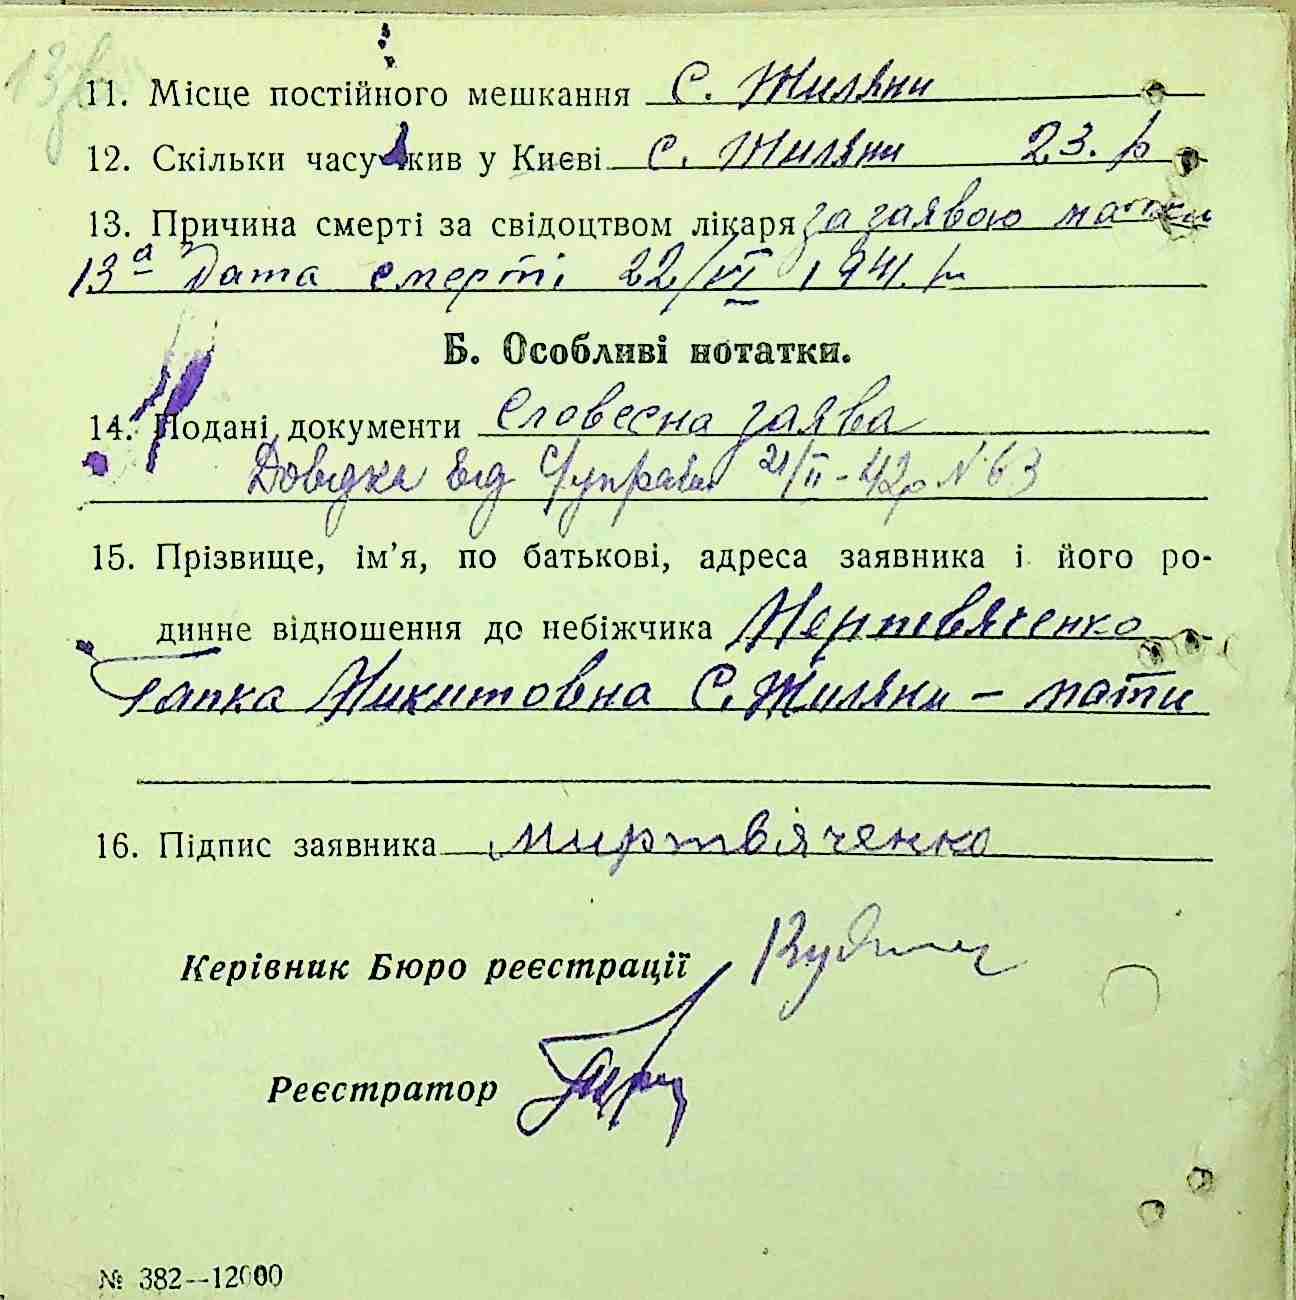 11. Місце постійного мешкання с. Жиляни
12. Скільки часу жив у Києві с. Жиляни 23. р
13. Причина смерті за свідоцтвом лікаря за заявою матки
13а Дата смерті 22/VI 1941. р
Б. Особливі нотатки.
14. Подані документи Словесна заява
Довідка від С/управи 21/II-42р N 63
15. Прізвище, ім'я, по батькові, адреса заявника і його ро-
динне відношення до небіжчика Мертвяченко
Гапка Микитовна С. Жиляни - мати
16. Підпис заявника миртвяченко
Керівник Бюро реєстрації
Реєстратор
№ 382—12000